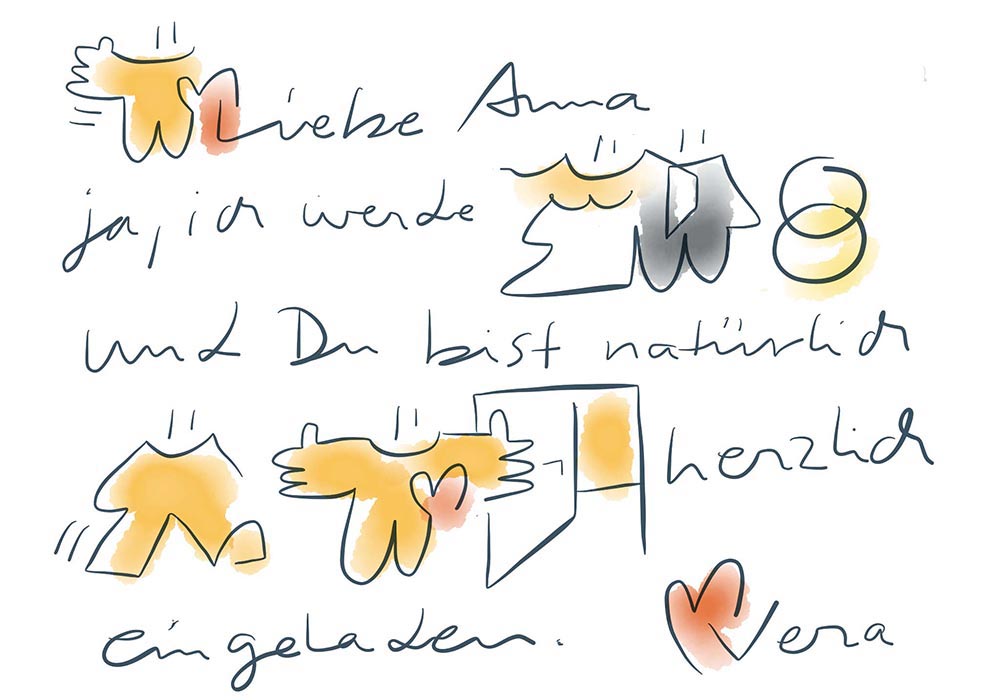 Liebe Anna
ja, ich werde
und Du bist natürlich
herzlich
eingeladen.
Vera